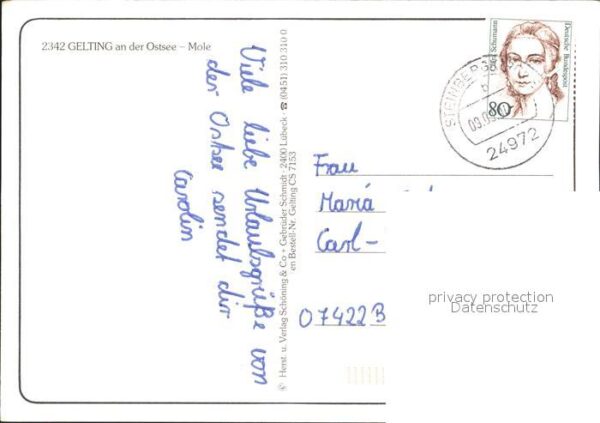 2342 GELTING an der Ostsee – Mole
Viele liebe Urlaubsgrüße von
der Ostsee sendet dir
Carolin
© Herst. u. Verlag Schöning & Co + Gebrüder Schmidt · 2400 Lübeck · ☎ (0451) 310 310 0
en Bestell-Nr. Gelting CS 7153
Schumann
Deutsche Bundespost
80
STEINBERG
b
09.09
24972
Frau
Maria
Carl-
07422 B
privacy protection
Datenschutz